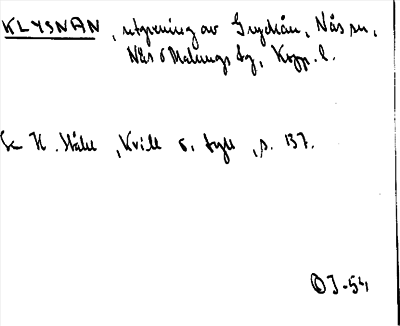 KLYSNAN, utgrening av Gryckån, Nås sn,
Nås o Malungs dg, Kopp. l.
Se H. Ståhl, Kvill o. tyll, s. 137.
OJ-54